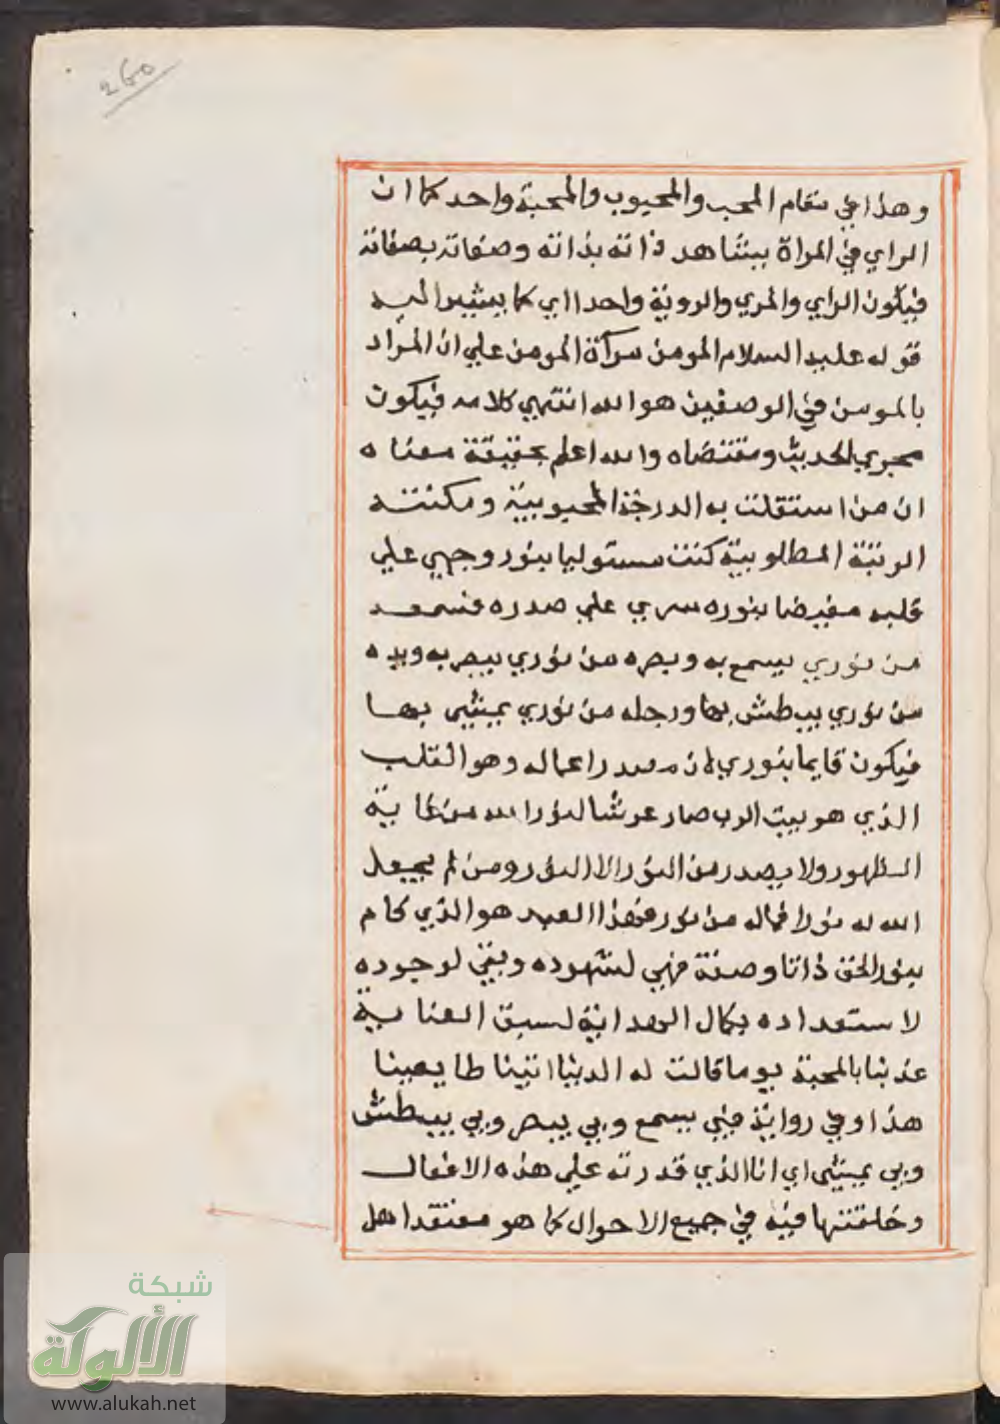 260
وهذا في مقام المحب والمحبوب والمحبة واحد كما ان
الراي في المراة يشاهد ذاته بذاته وصفاته بصفاته
فيكون الراي والمري والروية واحدا اي كما يشير اليه
قوله عليه السلام المومن مرآة المومن علي ان المراد
بالمومن في الوصفين هو الله انتهي كلامه فيكون
مجري الحديث ومقتضاه والله اعلم بحقيقة معناه
ان من استقلت به الدرجة المحبوبية ومكنته
الرتبة المطلوبية كنت مستوليا بنور وجهي علي
قلبه مفيضا بنوره سري علي صدره فسمعه
من نوري يسمع به وبصره من نوري يبصر به ويده
من نوري يبطش بها ورجله من نوري يمشي بها
فيكون قايما بنوري لان مصدر اعماله وهو القلب
الذي هو بيت الرب صار عرشا لنور الله من غاية
الظهور ولا يصدر من النور الا النور ومن لم يجعل
الله له نورا فماله من نور فهذا العبد هو الذي كام
بنور الحق ذاتا وصفة فهي لشهوده وبقي لوجوده
لاستعداده بكمال الوحدانية لسبق العناية
عذبنا بالمحبة يوما قالت له الدنيا اتينا طايعينا
هذا وفي رواية فبي يسمع وبي يبصر وبي يبطش
وبي يمشي اي انا الذي قدرته علي هذه الافعال
وخلقتها فيه في جميع الاحوال كما هو معتقد اهل
شبكة
الألوكة
www.alukah.net